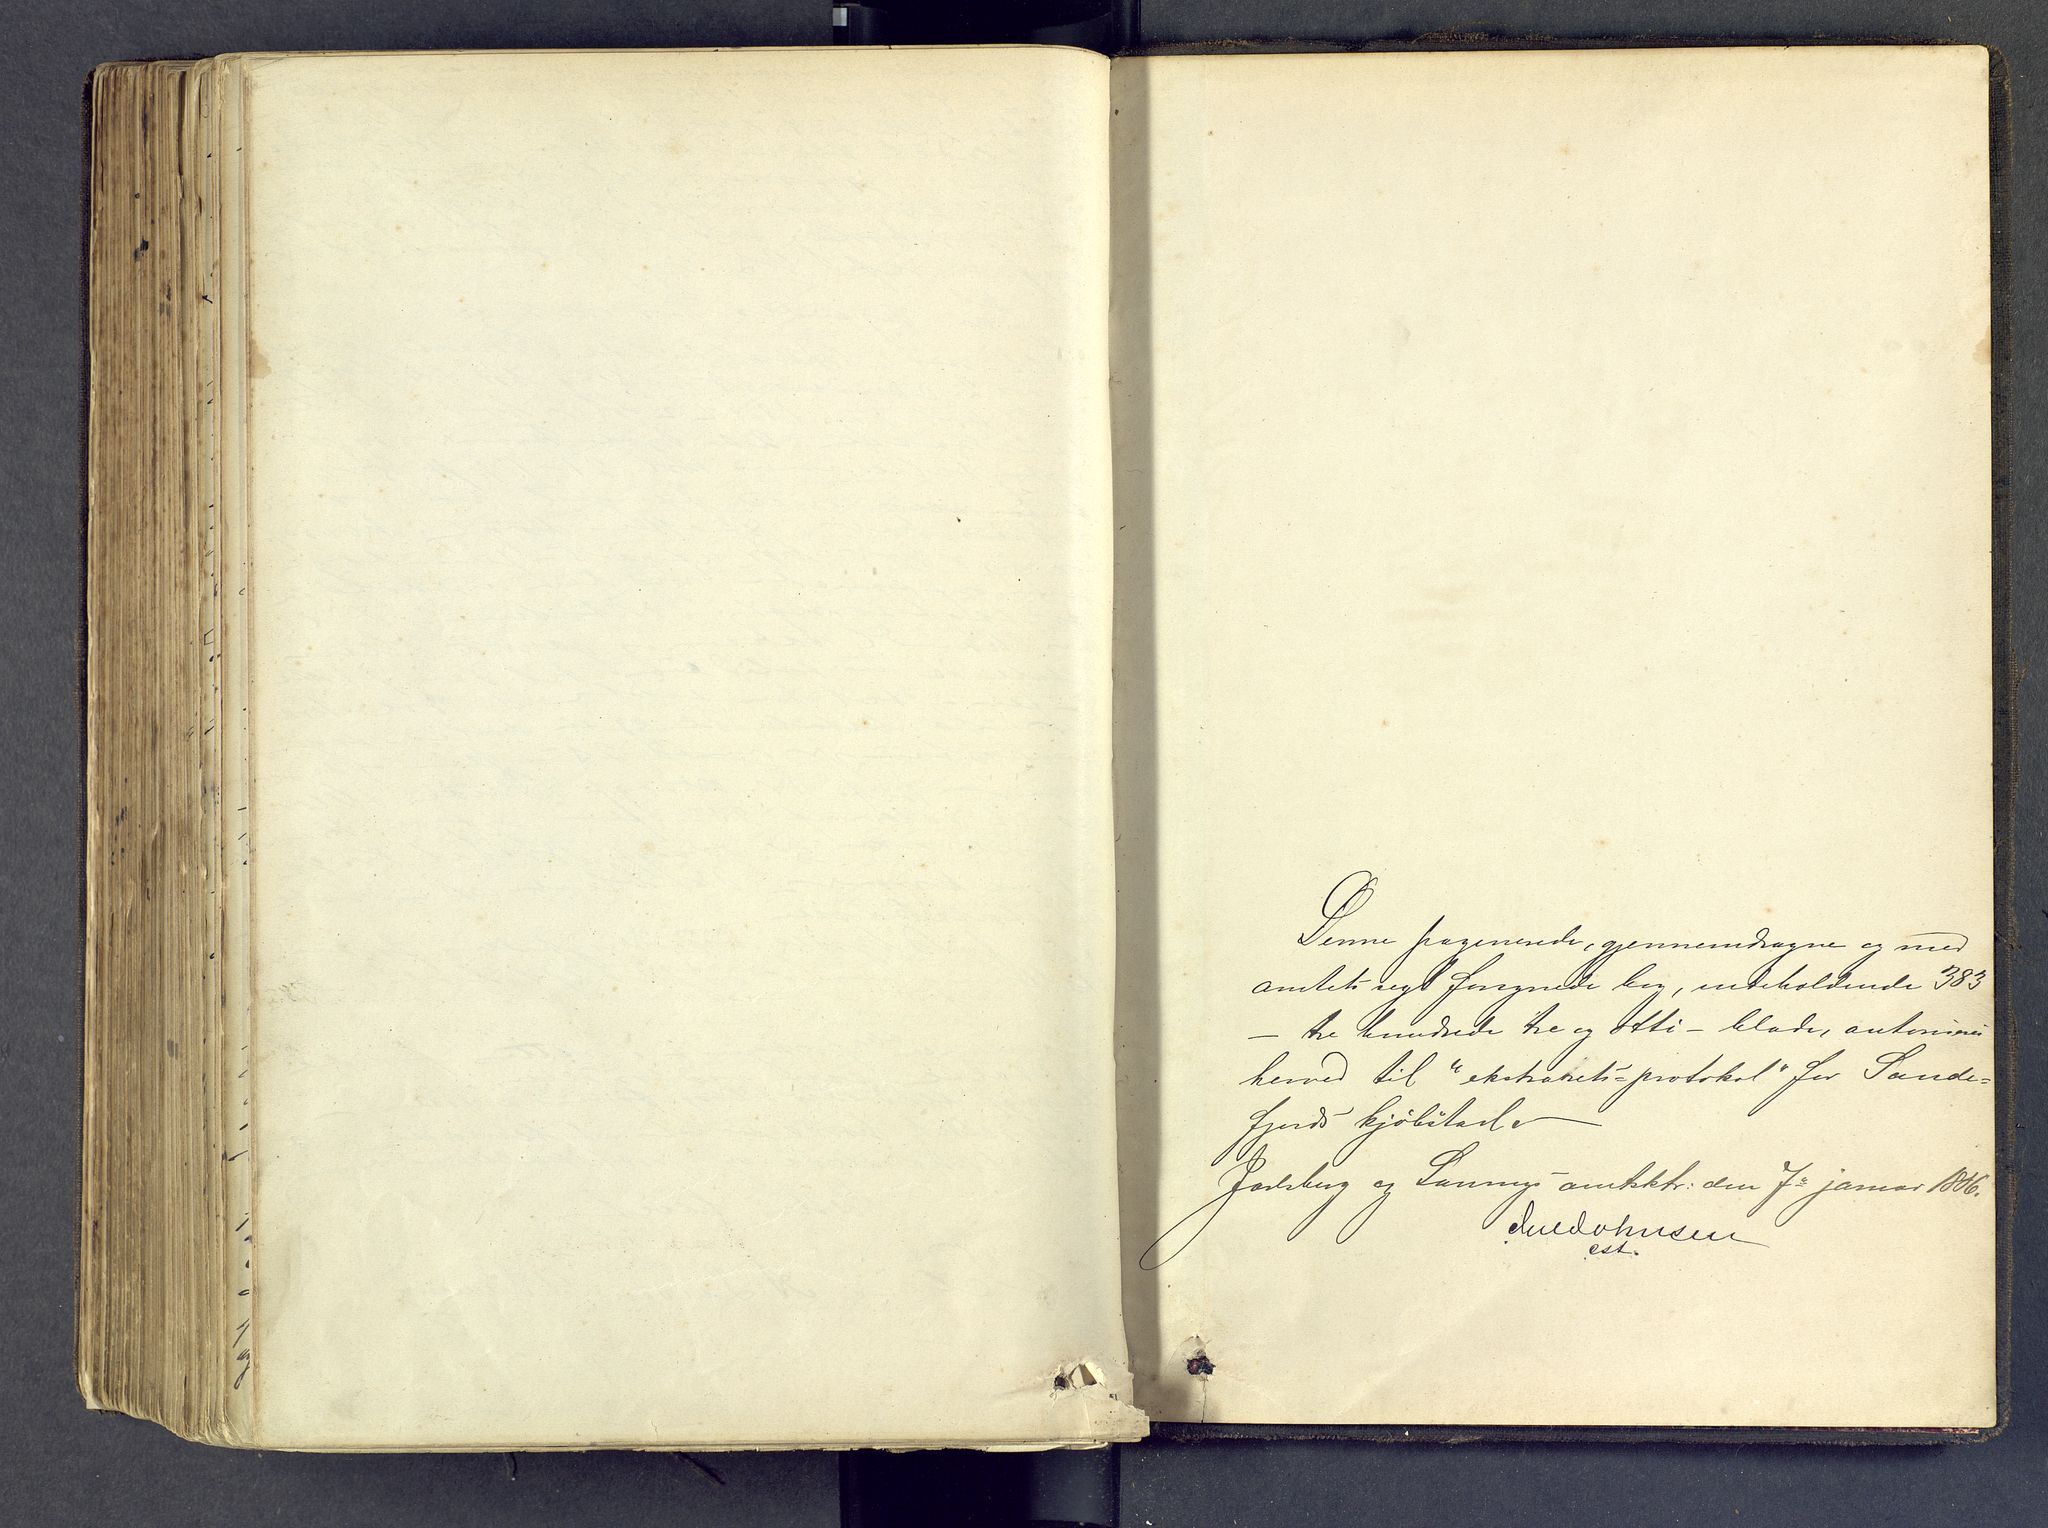 Denne paginerede, gjennemdragne og med
amtets segl forsynede bog, indeholdende 383
– tre hundrede tre og otti – blade, autoriseres
herved til "ekstrakts=protokol" for Sande=
fjords kjöbstad.
Jarlsberg og Laurvigs amtsktr: den 7de januar 1886.
cst.